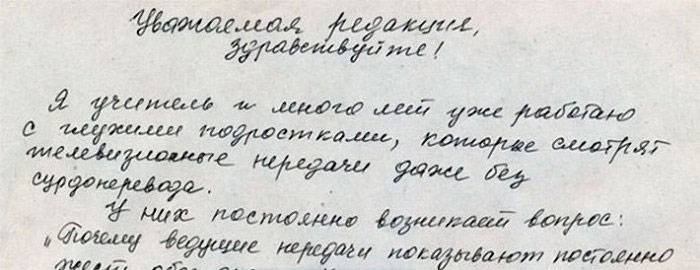 Уважаемая редакция,
здравствуйте!
Я учитель и много лет уже работаю
с глухими подростками, которые смотрят
телевизионные передачи даже без
сурдоперевода.
У них постоянно возникает вопрос:
„Почему ведущие передачи показывают постоянно
жест